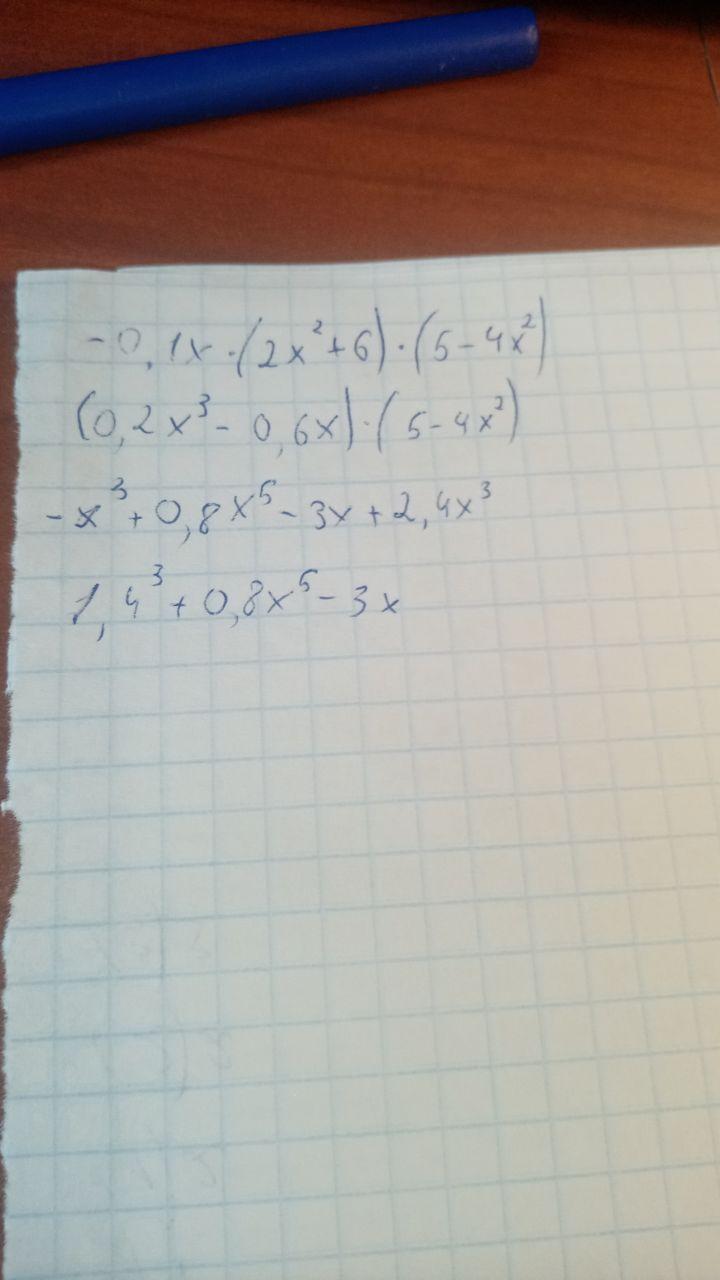 -0,1x·(2x²+6)·(5-4x²)
(0,2x³-0,6x)·(5-4x²)
-x³+0,8x⁵-3x+2,4x³
1,4³+0,8x⁵-3x